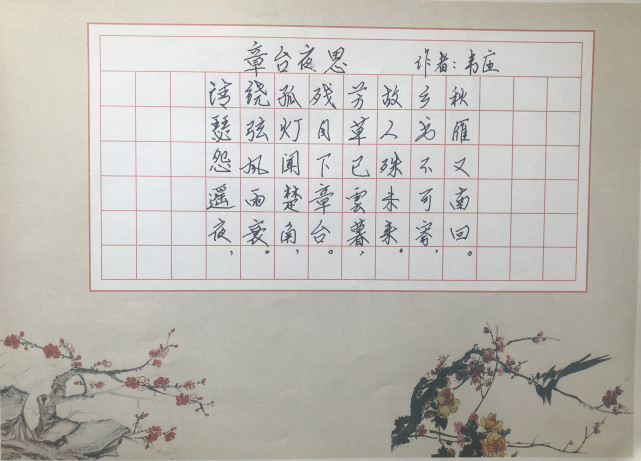 章台夜思 作者：韦庄
清瑟怨遥夜，
绕弦风雨哀。
孤灯闻楚角，
残月下章台。
芳草已雲暮，
故人殊未来。
乡书不可寄，
秋雁又南回。